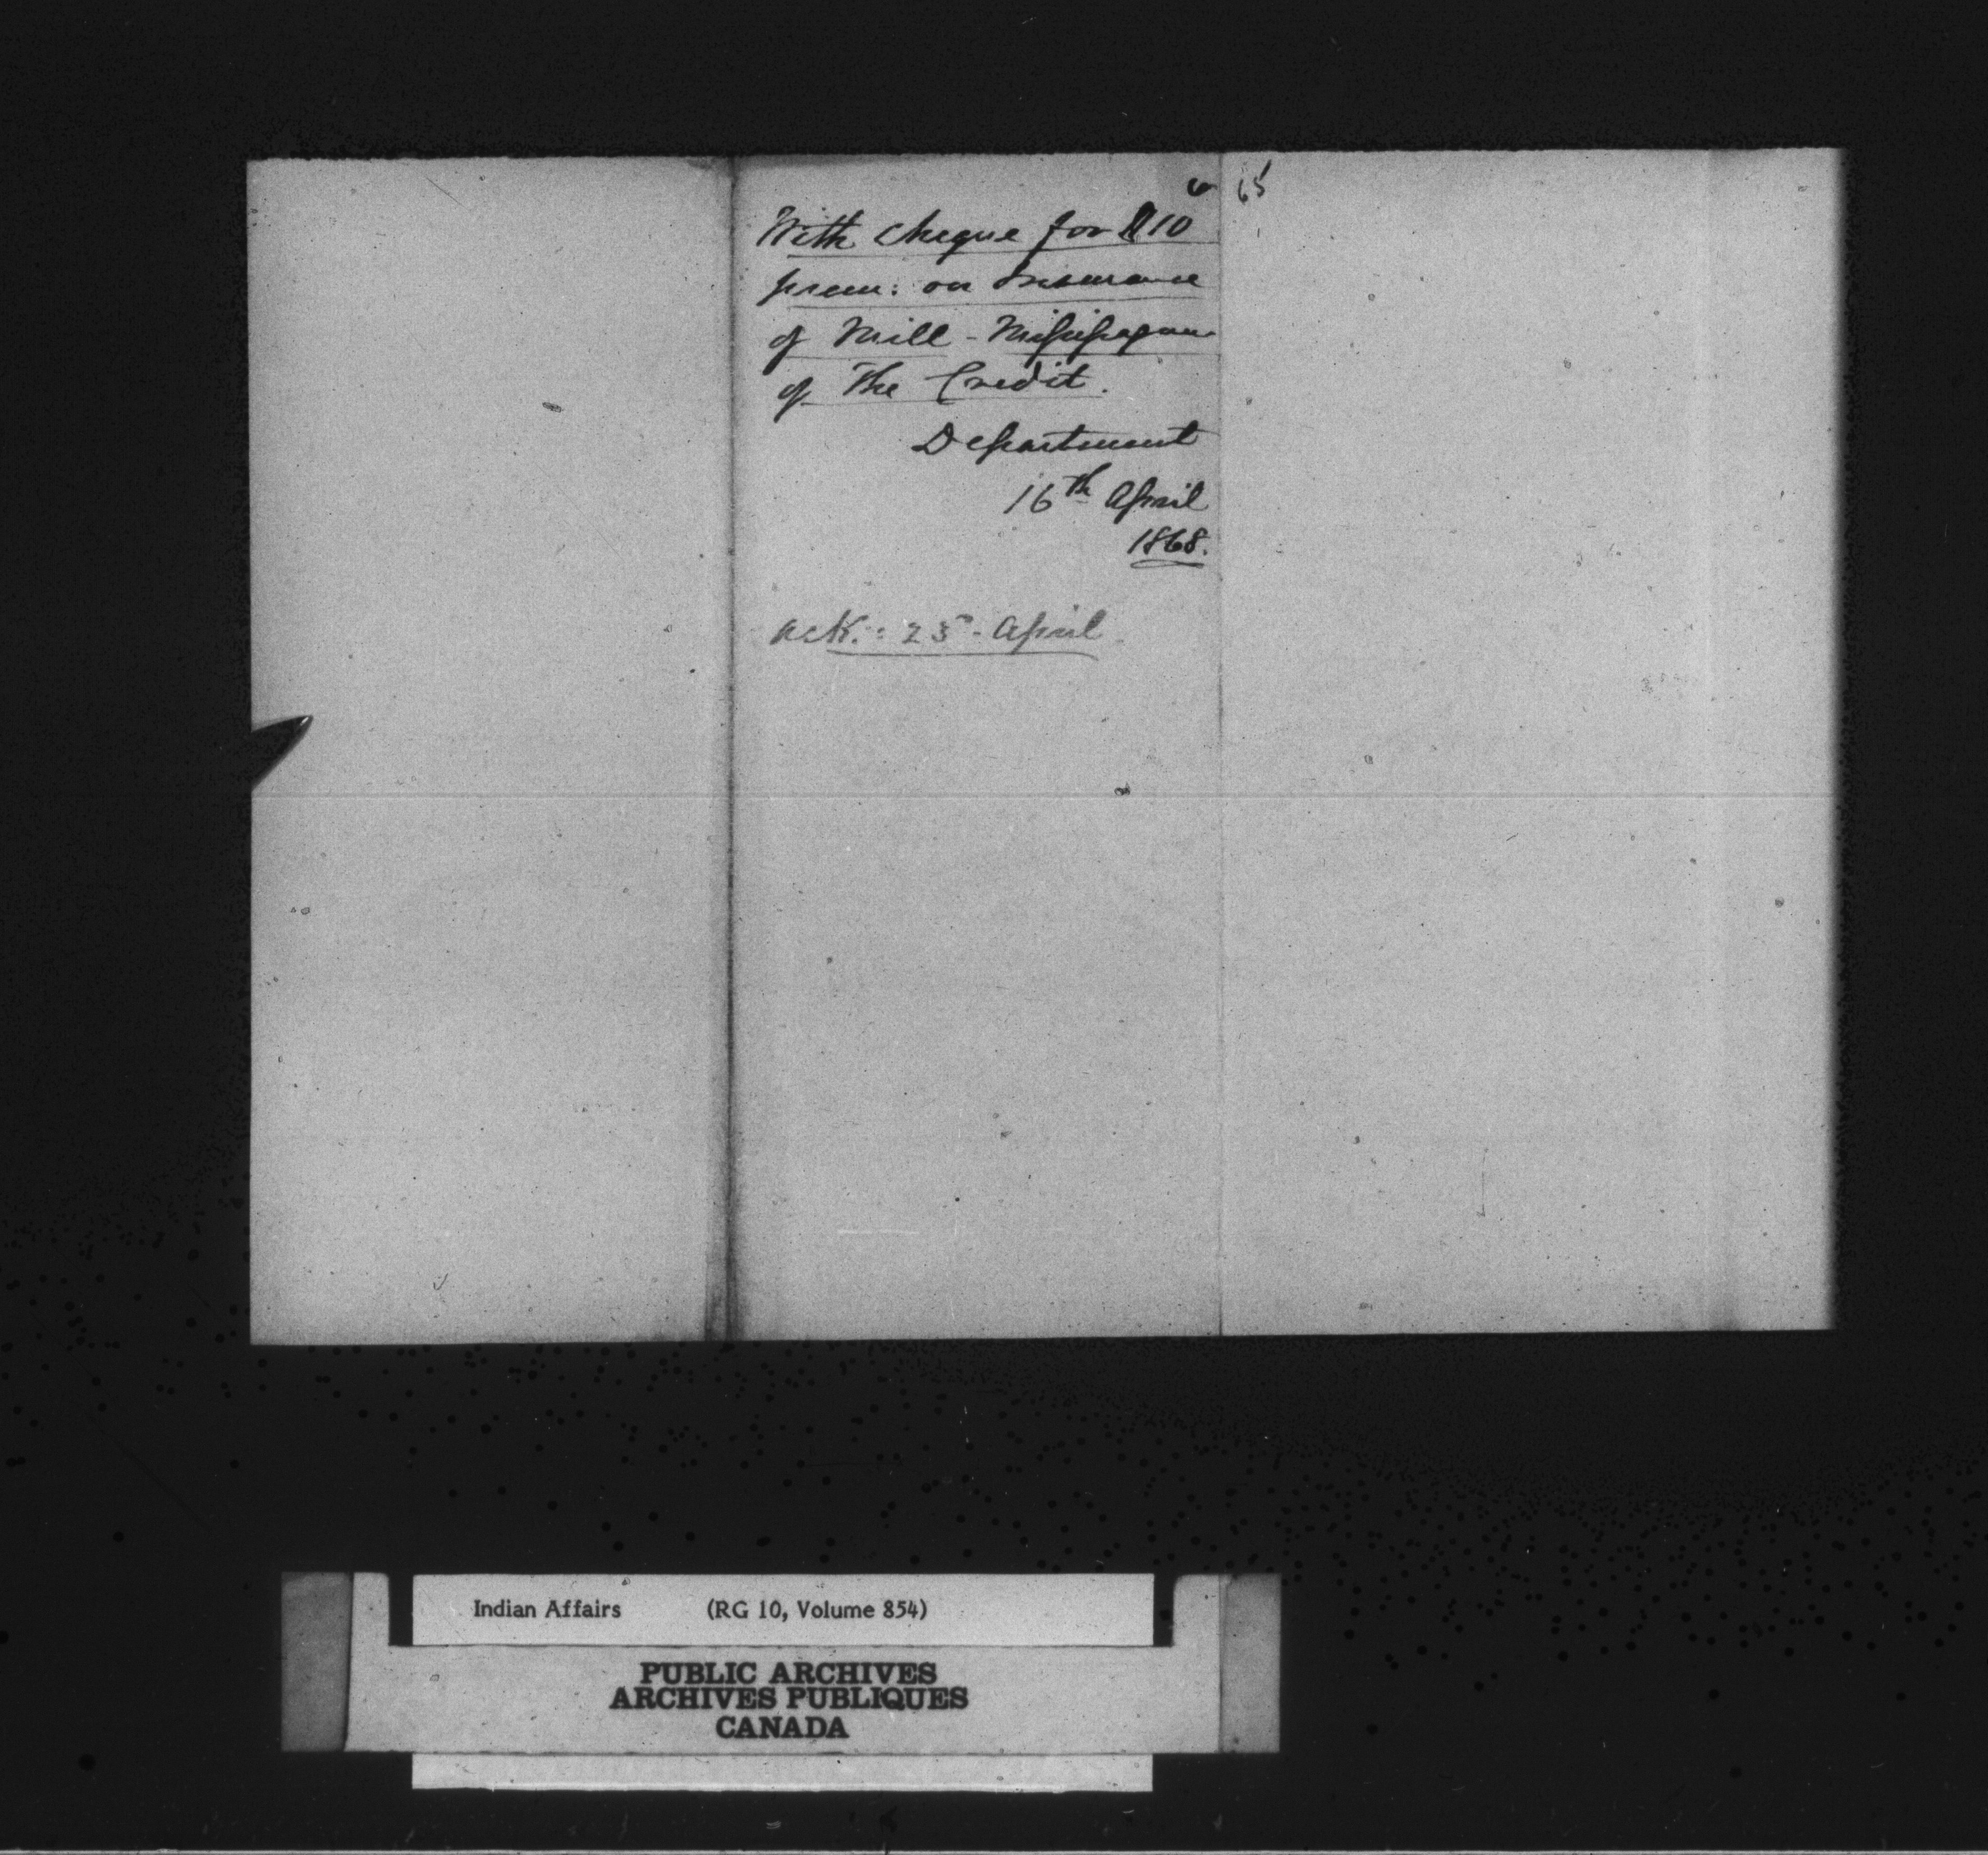 65
With cheque for $10
prem: on Insurance
of Mill - Missisagua
of The Credit.
Department
16th April
1868.
ack.: 25 - April
Indian Affairs (RG 10, Volume 854)
PUBLIC ARCHIVES
ARCHIVES PUBLIQUES
CANADA